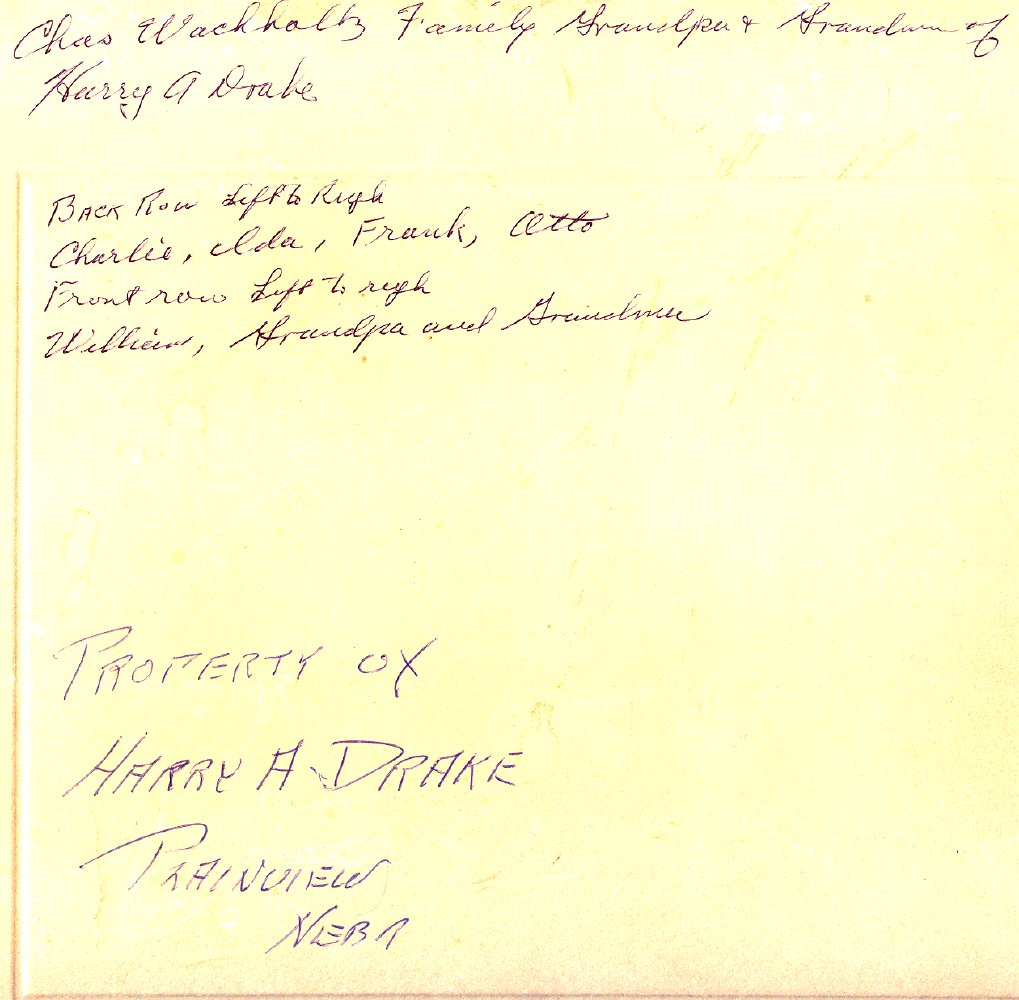 Chas Wachholtz Family Grandpa & Grandma of
Harry A Drake
Back Row Left to Righ
Charlie, Ida, Frank, Otto
Front row Left to righ
William, Grandpa and Grandma
PROPERTY OF
HARRY A DRAKE
PLAINVIEW
NEBR